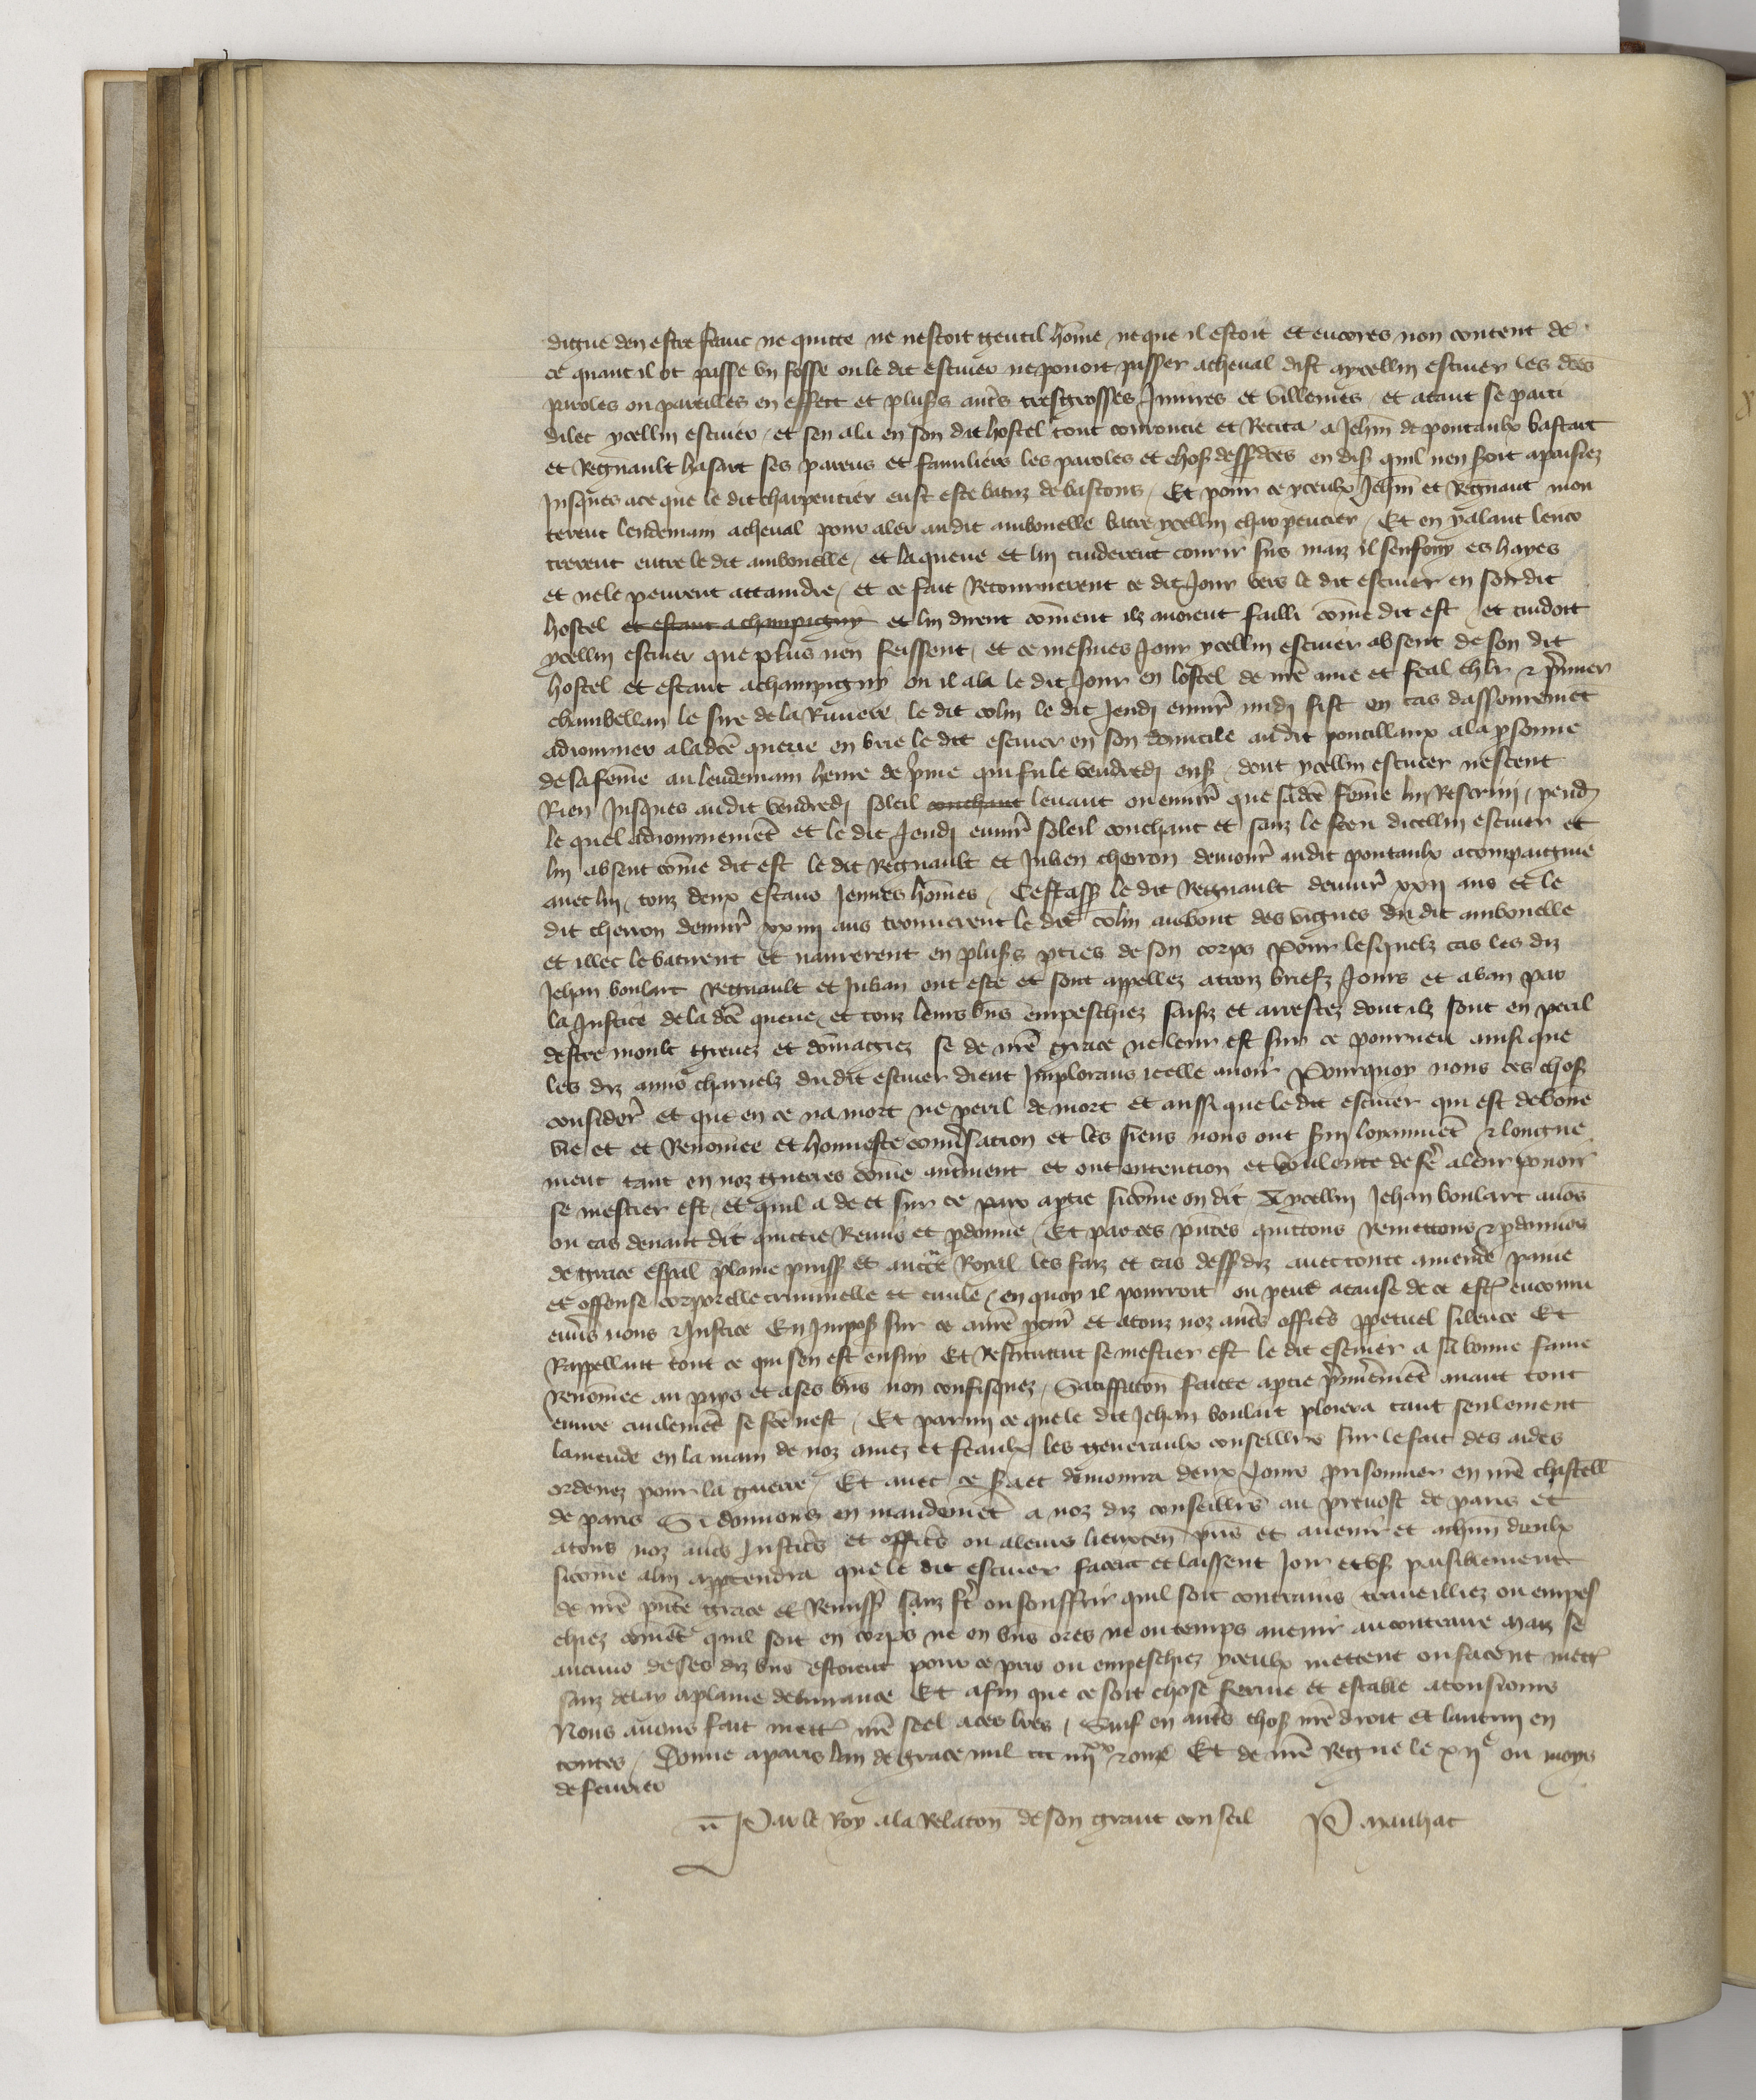 digne den estre franc ne quitte ne nestoit gentil home ne que il estoit et encores non content de
ce quant il ot passe un fosse ou le dit escuier ne pouoit passer acheval dist aycellui escuier les dces
paroles ou pareilles en effect et pluss autres tresgrosses Iniures et villenies et atant se parti
dilec ycellui escuier et sen ala en son dit hostel tout courroucie et Recita a Jehan de pontaulx bastart
et Regnault hasart ses parens et familiers les paroles et choses dessdces en dis quil nen seroit apaisiez
Jusques ace que le dit charpentier eust este batuz de bastons Et pour ce yceulx Jehan et Regnaut mon
terent lendemain acheval pour aler audit ambonelle batre ycellui charpentier Et en y alant lenco
trerent entre le dit ambonelle et laqueue et lui cuiderent courir sus maiz il senfouy es hayes
et nele peurent attaindre et ce fait Retournerent ce dit Jour vers le dit escuier en son dit
hostel et estant a champigny et lui dirent coment ilz auoient failli come dit est et cuidoit
ycellui escuier que plus nen feissent et ce mesmes Jour ycellui escuier absent de son dit
hostel et estant achampigny ou il ala le dit Jour en lostel de nre ame et feal chlr et premier
chambellan le sire de la Riuiere le dit colin le dit Jeudi enuir midi fist en cas dasseuremet
adiourner aladce queue en brie le dit escuier en son domicile audit pontillaux ala psonne
de sa feme au lendemain heure de prime qui fu le vendredi ens dont ycellui escuier nescent
Rien Jusques audit vendredi soleil couchant leuant ou enuir que sadce feme lui Rescrivi pend
le quel adiournemet et le dit Jeudi enuir soleil couchant et sanz le sceu dicellui escuier et
lui absent come dit est le dit Regnault et Julien cheron demour audit pontaulx acompaigne
auec lui touz deux estans Jeunes homes Cestass le dit Regnault denuir xxij ans et le
dit cheron denuir xxiiij ans trouuerent le dit colin aubout des vignes du dit ambonelle
et illec le batirent et naurerent en pluss pties de son corps Pour lesquelz cas les diz
Jehan boulart Regnault et Julian ont este et sont appellez atroiz briefz Jours et a ban par
la Justice de la dce queue et touz leurs bns empeschiez saisiz et arrestez dont ilz sont en peril
destre moult greuez et domagiez se de nre grace ne leur est sur ce pourueu ainsi que
les diz amis charnelz dudit escuier dient Implorans icelle auoir Pourquoy nous ces chos
consider et que en ce na mort ne peril de mort et aussi que le dit escuier qui est de bone
vie et et Renomee et honneste conuersation et les siens nous ont serui loyaumet et longue
ment tant en noz guerres come autrement et ont entention et voulente de fe aleur pouoir
se mestier est et quil a de et sur ce paix aptie sicome on dit A ycellui Jehan boulart auos
ou cas deuant dit quittie Remis et pdonne Et par ces pntes quittons Remettons et pdonnos
de grace espal plaine puiss et aucte Royal les faiz et cas dessdiz auec toute amende paine
et offense corporelle criminelle et ciuile en quoy il pourroit ou peut acause de ce estre encouru
enuers nous et Justice En Impos sur ce anre pcur et atouz noz autres offics ppetuel silence Et
Rappellant tout ce qui sen est ensuy Et Restituant se mestier est le dit escuier a sa bonne fame
renomee au pays et ases bns non confisquez Satiffacon faitte aptie premieremet auant tout
euure ciuilemet se fce nest Et parmi ce que le dit Jehan boulart ploiera tant seulement
lamende en la main de noz amez et feaulx les generaulx conseillers sur le fait des aides
ordenez pour la guerre Et auec ce demourra deux Jours prisonnier en nre chastell
de paris Si donnons en mandemet a noz diz conseillers au preuost de paris et
atous noz autres Justices et offics ou aleurs lieuxten pns et auenir et achun deulx
sicome alui appartendra que le dit escuier facent et laissent Joir et us paisiblement
de nre pnte grace et Remiss sanz fe ou souffrir quil soit contrains trauailliez ou empes
chiez comet quil soit en corps ne en bns ores ne ou temps auenir aucontraire Maiz se
aucuns de ses diz bns estoient pour ce pris ou empeschiez yceulx mettent ou facent mettre
sanz delay aplaine deliurance Et afin que ce soit chose ferme et estable atousiours
Nous auons fait mettre nre seel aces lres Sauf en autres chos nre droit et lautruy en
toutes Donne aparis lan de grace mil ccc iiijxx et onze Et de nre Regne le xije ou moys
de feurier
Par le Roy ala Relacon de son grant conseil P. Manhac